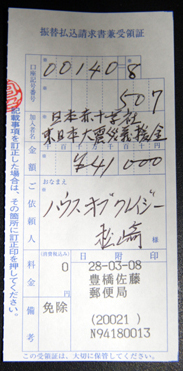 振替払込請求書兼受領証
口座記号番号
00140 8
507
加入者名
日本赤十字社
東日本大震災義援金
金額
¥41000
ご依頼人
おなまえ
ハウスオブクレイジー
松崎 様
料金
(消費税込み)
0 円
備考
免除
28-03-08
豊橋佐藤
郵便局
(20021)
N94180013
この受領証は、大切に保管してください。
記載事項を訂正した場合は、その箇所に訂正印を押してください。